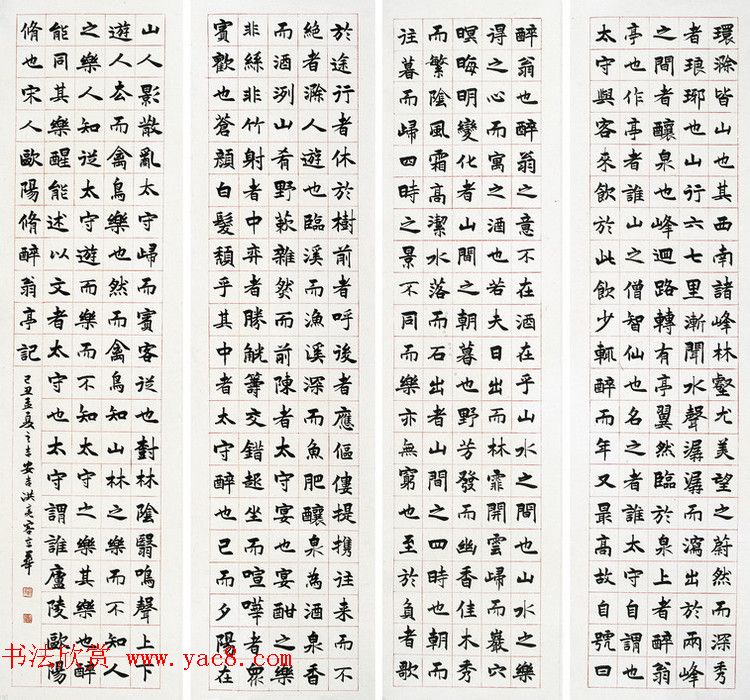 環滁皆山也其西南諸峰林壑尤美望之蔚然而深秀
者琅琊也山行六七里漸聞水聲潺潺而瀉出於兩峰
之間者釀泉也峰迴路轉有亭翼然臨於泉上者醉翁
亭也作亭者誰山之僧智仙也名之者誰太守自謂也
太守與客來飲於此飲少輒醉而年又最高故自號曰
醉翁也醉翁之意不在酒在乎山水之間也山水之樂
得之心而寓之酒也若夫日出而林霏開雲歸而巖穴
暝晦明變化者山間之朝暮也野芳發而幽香佳木秀
而繁陰風霜高潔水落而石出者山間之四時也朝而
往暮而歸四時之景不同而樂亦無窮也至於負者歌
於途行者休於樹前者呼後者應傴僂提攜往来而不
絕者滁人遊也臨溪而漁溪深而魚肥釀泉為酒泉香
而酒洌山肴野蔌雜然而前陳者太守宴也宴酣之樂
非絲非竹射者中弈者勝觥籌交錯起坐而喧嘩者眾
賓歡也蒼顏白髮頹乎其中者太守醉也已而夕陽在
山人影散亂太守歸而賓客從也對林陰翳鳴聲上下
遊人去而禽鳥樂也然而禽鳥知山林之樂而不知人
之樂人知從太守遊而樂而不知太守之樂其樂也醉
能同其樂醒能述以文者太守也太守謂誰廬陵歐陽
脩也宋人歐陽脩醉翁亭記
己丑孟夏之吉安吉洪
书法欣赏 www.yac8.com